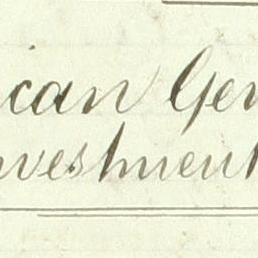 ican Gen
nvestment